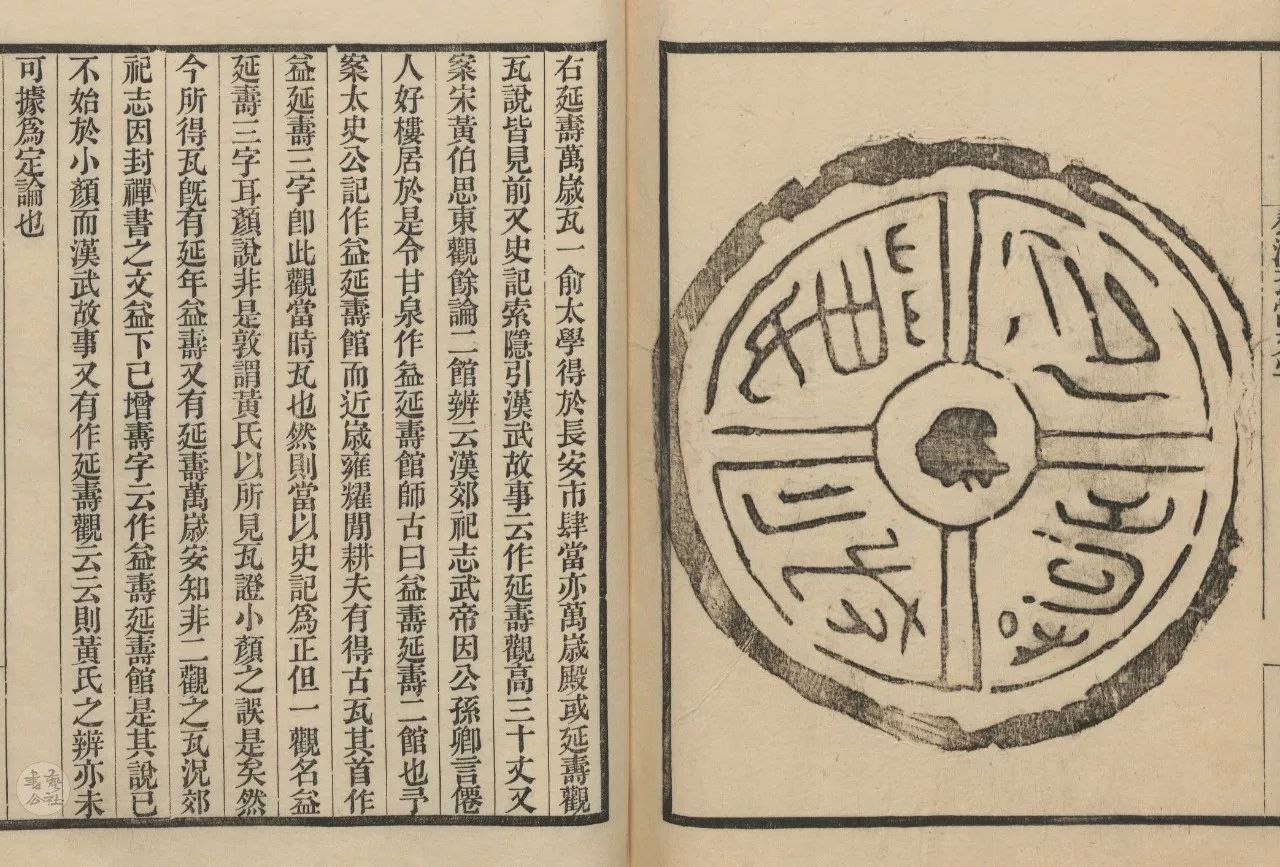 延壽萬歲
右延壽萬歲瓦一俞太學得於長安市肆當亦萬歲殿或延壽觀
瓦說皆見前又史記索隱引漢武故事云作延壽觀高三十丈又
案宋黃伯思東觀餘論二館辨云漢郊祀志武帝因公孫卿言僊
人好樓居於是令甘泉作益延壽館師古曰益壽延壽二館也予
案太史公記作益延壽館而近歲雍耀閒耕夫有得古瓦其首作
益延壽三字卽此觀當時瓦也然則當以史記爲正但一觀名益
延壽三字耳顏說非是敦謂黃氏以所見瓦證小顏之誤是矣然
今所得瓦旣有延年益壽又有延壽萬歲安知非二觀之瓦況郊
祀志因封禪書之文益下已增壽字云作益壽延壽館是其說已
不始於小顏而漢武故事又有作延壽觀云云則黃氏之辨亦未
可據爲定論也
書藝公社